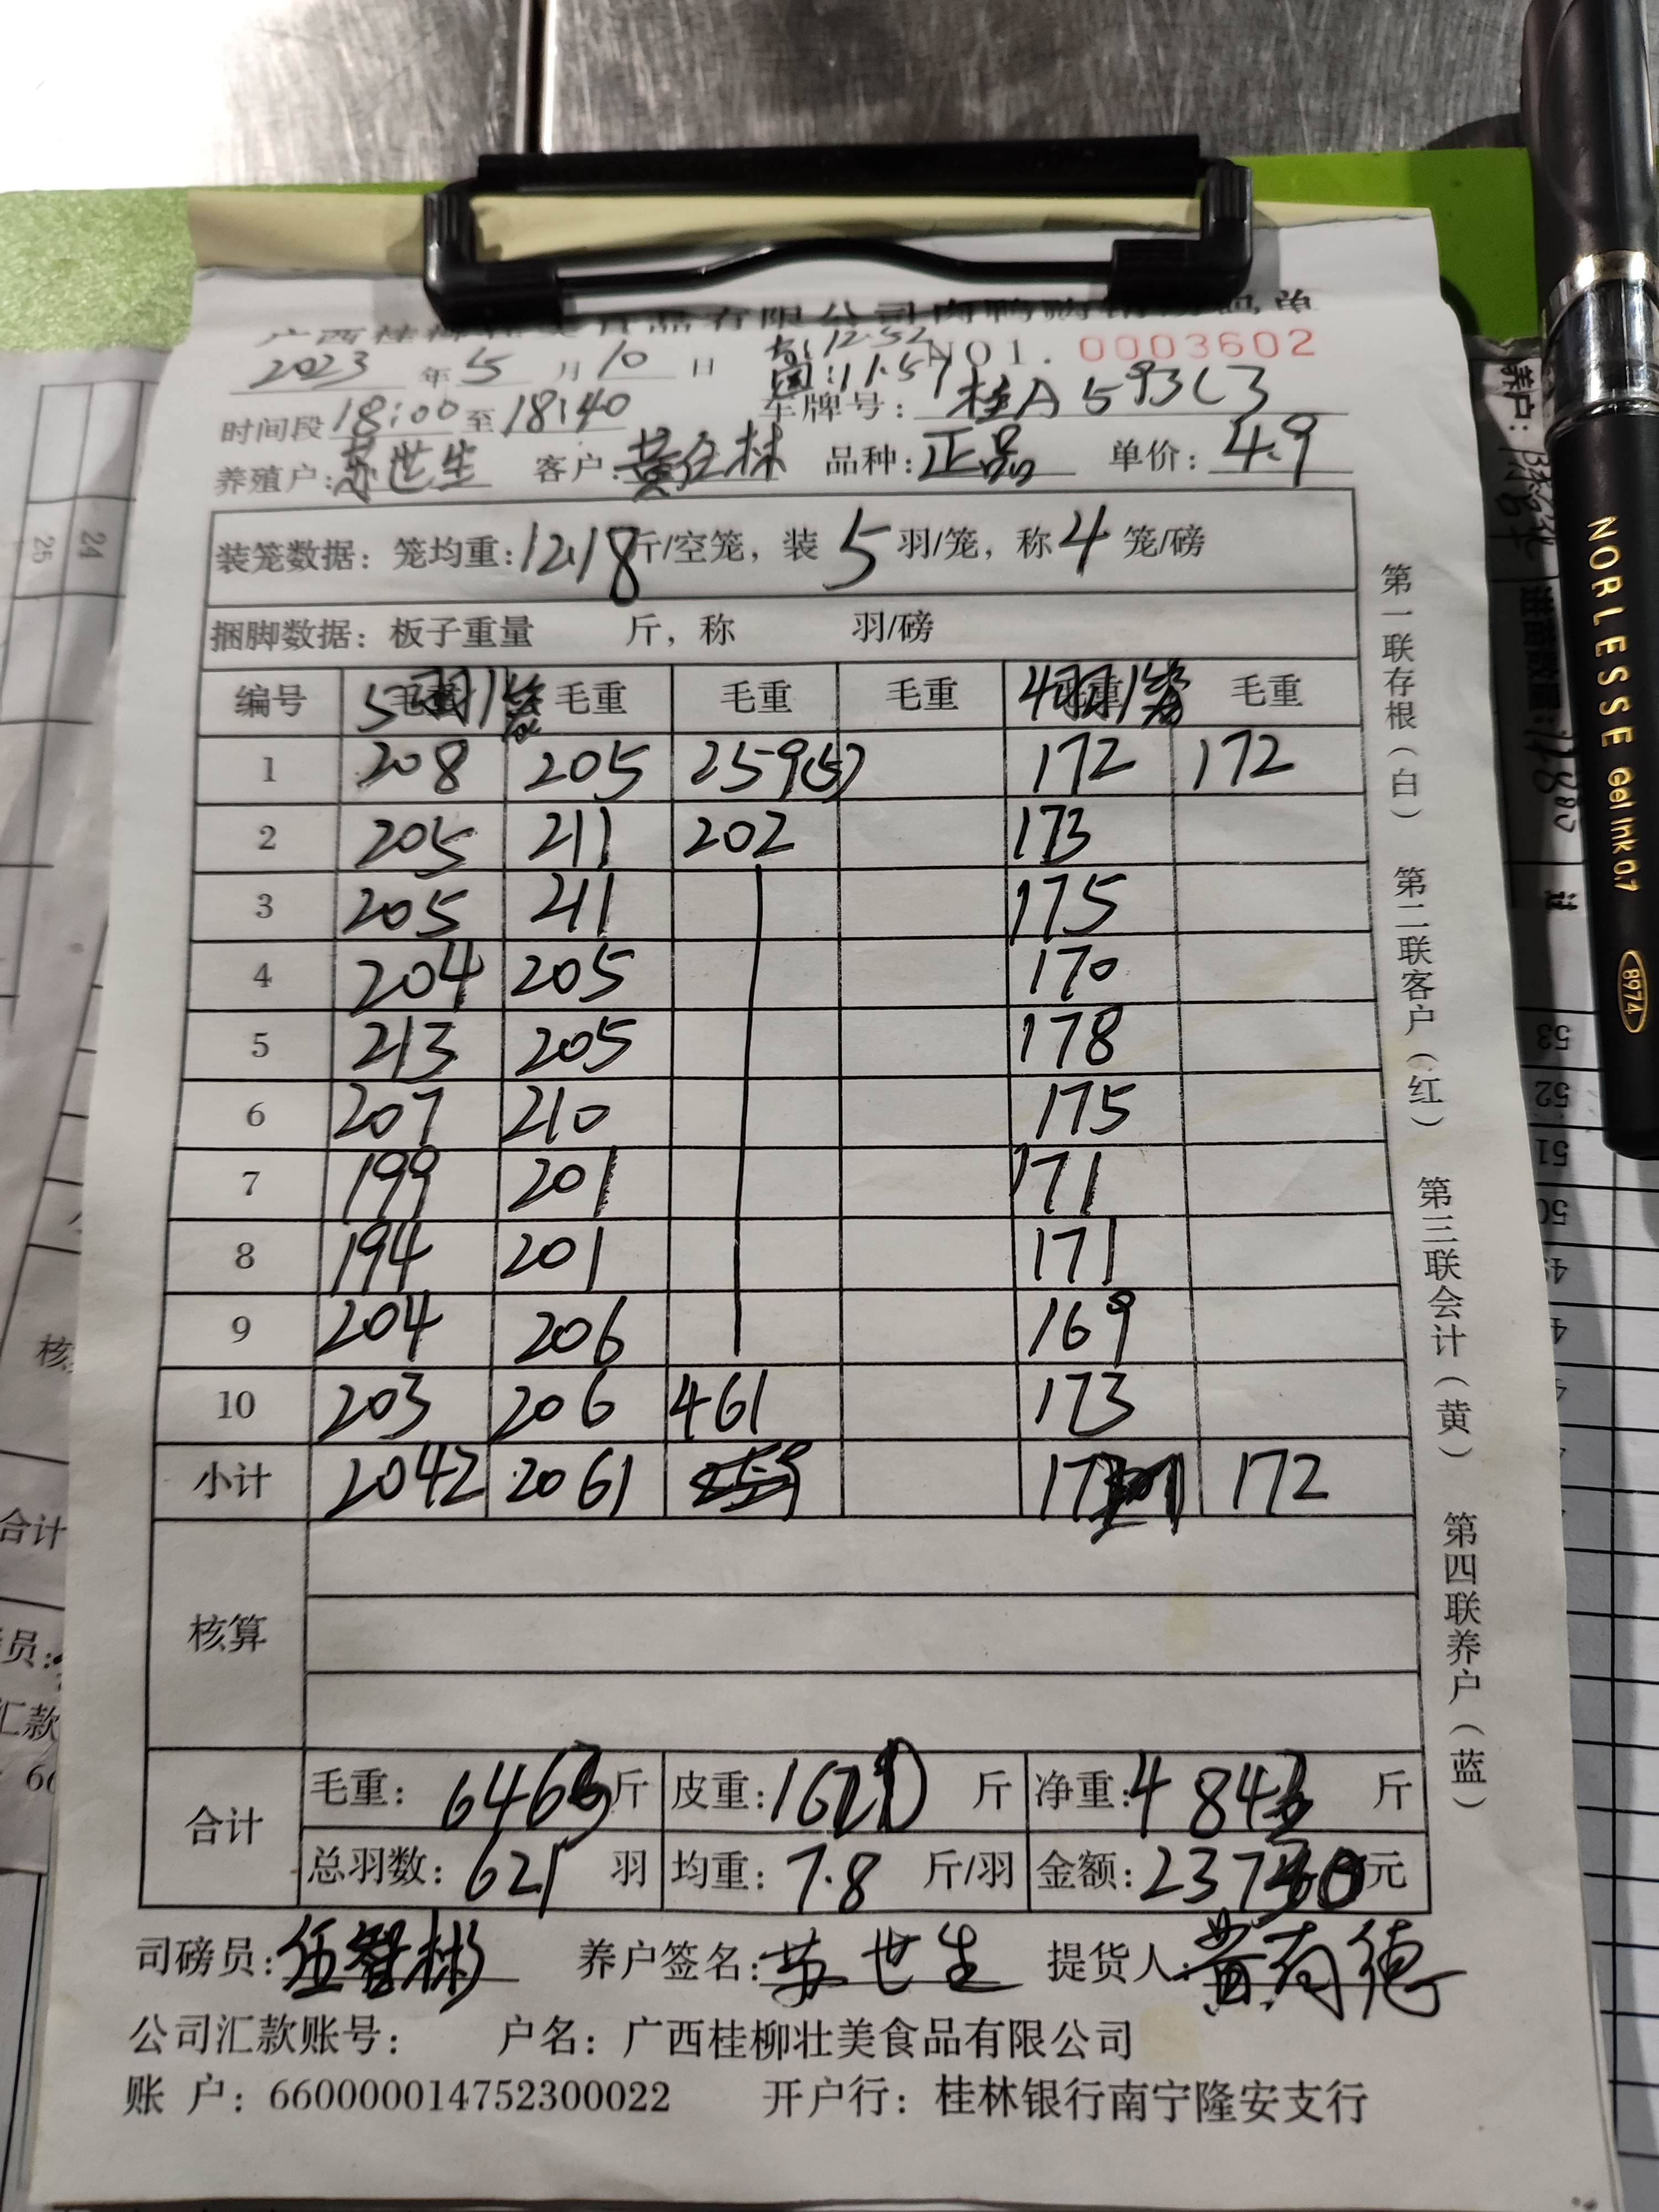 有限公司肉鸭购销过磅单
2023 年 5 月 10 日 NO1. 0003602
时间段 18:00 至 18:40 车牌号: 桂A 593C3
养殖户: 苏世生 客户: 品种: 正品 单价: 4.9
装笼数据: 笼均重: 12.18 斤/空笼, 装 5 羽/笼, 称 4 笼/磅
捆脚数据: 板子重量 斤, 称 羽/磅
编号 5羽1 毛重 毛重 毛重 4羽1 毛重
1 208 205 259(5) 172 172
2 205 211 202 173
3 205 211 175
4 204 205 170
5 213 205 178
6 207 210 175
7 199 201 171
8 194 201 171
9 204 206 169
10 203 206 461 173
小计 2042 2061 172
核算
合计
毛重: 斤 皮重: 斤 净重: 斤
总羽数: 621 羽 均重: 7.8 斤/羽 金额: 元
司磅员: 伍智彬 养户签名: 苏世生 提货人: 黄有德
公司汇款账号: 户名: 广西桂柳壮美食品有限公司
账 户: 660000014752300022 开户行: 桂林银行南宁隆安支行
第一联存根(白) 第二联客户(红) 第三联会计(黄) 第四联养户(蓝)
NORLESSE Gel Ink 0.7 8974
24
25
53
52
51
50
合计